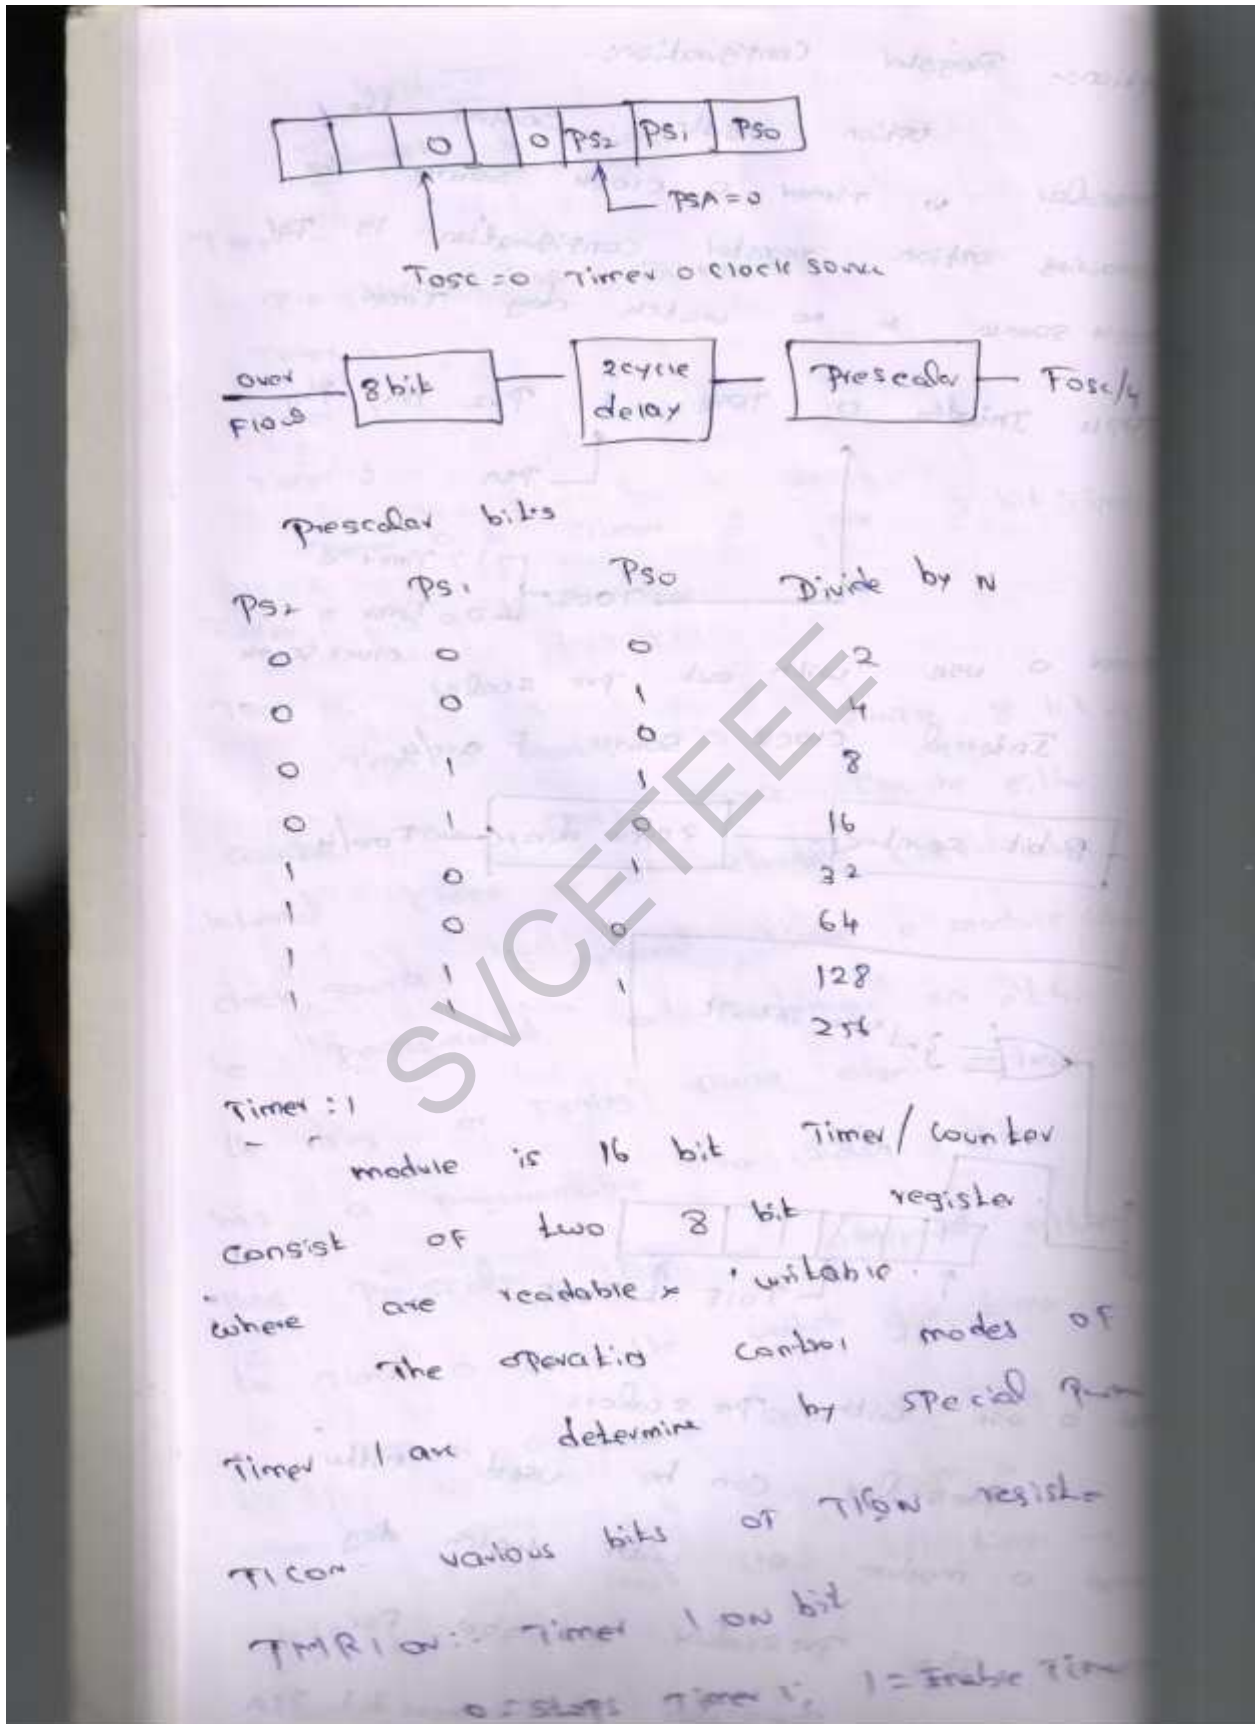 0 0 PS2 PS1 PS0
PSA = 0
Tosc = 0 Timer 0 clock
Over Flow 8 bit 2 cycle delay Prescalar Fosc/4
Prescalar bits
PS2 PS1 PS0 Divide by N
0 0 0 2
0 0 1 4
0 1 0 8
0 1 1 16
1 0 0 32
1 0 1 64
1 1 0 128
1 1 1 256
Timer : 1
module is 16 bit Timer / Counter
Consist of two 8 bit register
where are readable & writable.
The operating control modes of
Timer 1 are determine by special
T1CON various bits of T1CON
TMR1 ON : Timer 1 ON bit
0 = Stops Timer 1, 1 = Enable
SVCETEEE